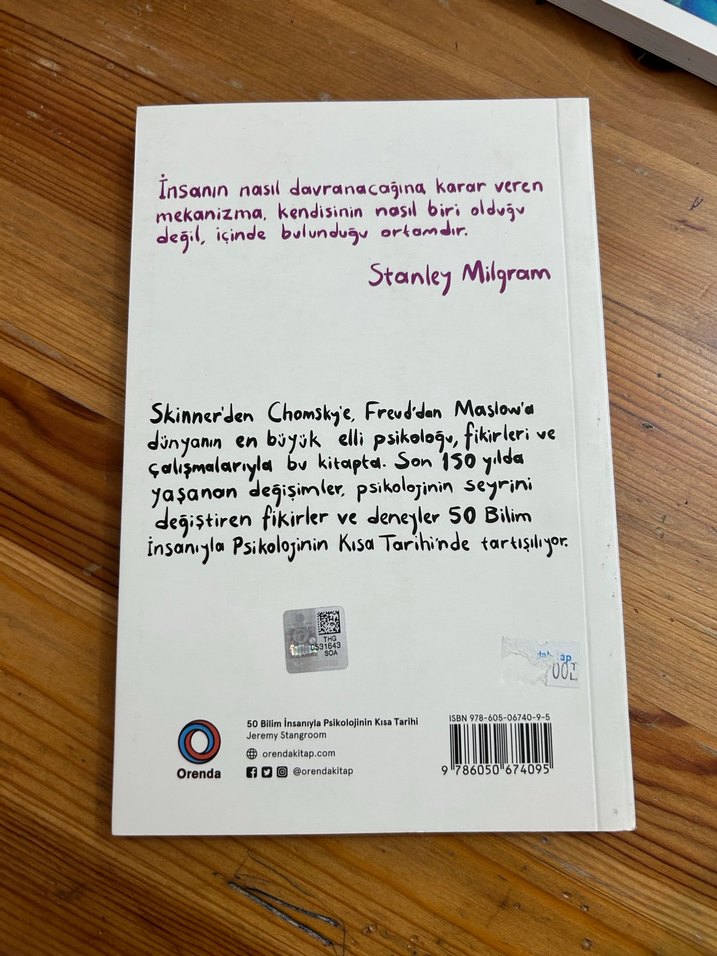 İnsanın nasıl davranacağına karar veren
mekanizma, kendisinin nasıl biri olduğu
değil, içinde bulunduğu ortamdır.
Stanley Milgram
Skinner'den Chomsky'e, Freud'dan Maslow'a
dünyanın en büyük elli psikoloğu, fikirleri ve
çalışmalarıyla bu kitapta. Son 150 yılda
yaşanan değişimler, psikolojinin seyrini
değiştiren fikirler ve deneyler 50 Bilim
İnsanıyla Psikolojinin Kısa Tarihi'nde tartışılıyor.
THG
0531643
SOA
Orenda
50 Bilim İnsanıyla Psikolojinin Kısa Tarihi
Jeremy Stangroom
orendakitap.com
@orendakitap
ISBN 978-605-06740-9-5
9 786050 674095